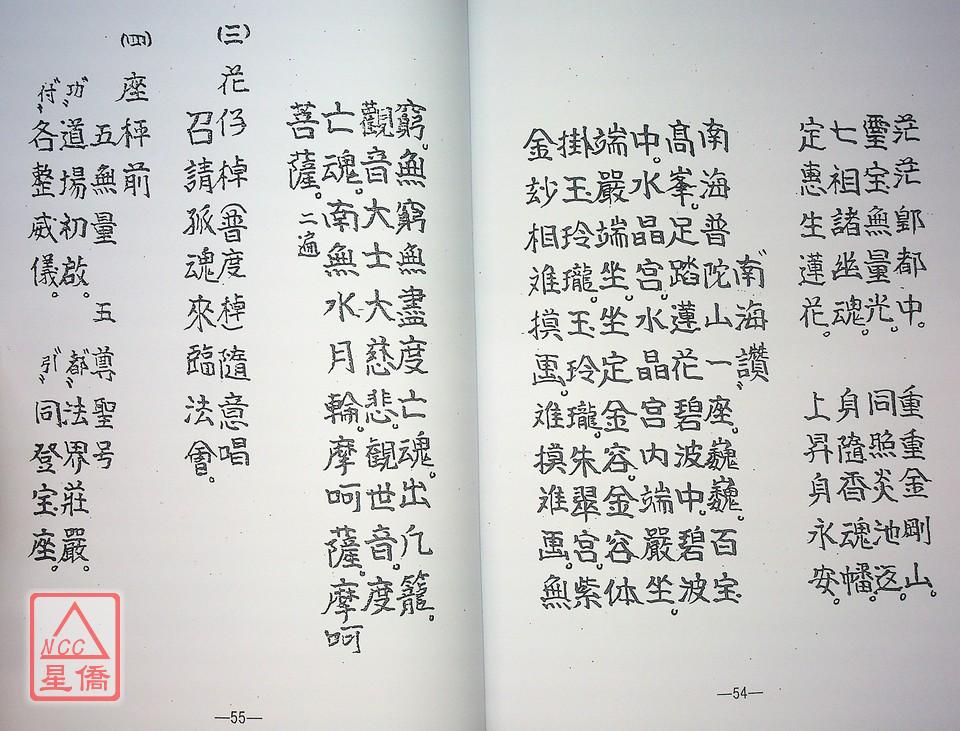 茫茫酆都中。 重重金剛山。
靈宝無量光。 同照炎池返。
七祖諸幽魂。 身隨香魂幡。
定惠生蓮花。 上昇身永安。
南海讚
南海普陀山一座。巍巍。百宝
高峯。足踏蓮花碧波中。碧波
中。水晶宮。水晶宮内端嚴坐。
端嚴端坐。坐定金容。金容体
掛玉玲瓏。玉玲瓏。朱翠宮。紫
金玅相难摸畫。难摸难畫。無
—54—
窮。無窮無盡度亡魂。出凢籠。
觀音大士大慈悲。觀世音。度
亡魂。南無水月輪。摩呵薩。摩呵
菩薩。二遍
(三) 花仔棹(普度棹)隨意唱
召請孤魂來臨法會。
(四) 座秤前
五無量 五尊聖号
功 道場初啟。 都 法界莊嚴。
付 各整威儀。 引 同登宝座。
—55—
NCC
星僑